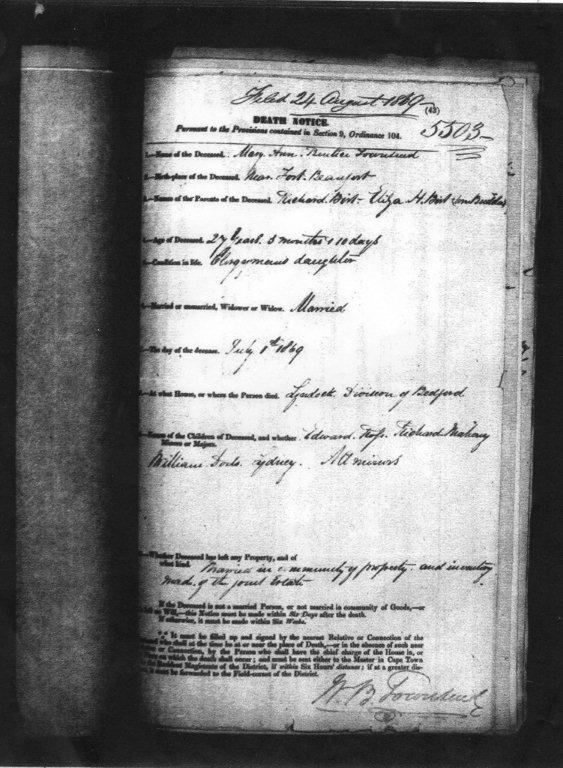 Filed 24 August 1869
(43)
DEATH NOTICE.
5503
Pursuant to the Provisions contained in Section 9, Ordinance 104.
Name of the Deceased. Mary Ann Townsend
Birth-place of the Deceased. Near Fort Beaufort
Names of the Parents of the Deceased. Richard Birt - Eliza H. Birt
Age of Deceased. 27 Years 5 months & 10 days
Condition in life. Clergyman's daughter
Married or unmarried, Widower or Widow. Married
The day of the decease. July 1st 1869
At what House, or where the Person died. Lyndoch Division of Bedford
Names of the Children of Deceased, and whether Edward Richard
Minors or Majors.
William Sydney. All minors
Whether Deceased has left any Property, and of
what kind. Married in community of property and inventory
made of the joint Estate
If the Deceased is not a married Person, or not married in community of Goods,—or
left a Will,—this Notice must be made within Six Days after the death.
If otherwise, it must be made within Six Weeks.
It must be filled up and signed by the nearest Relative or Connection of the
who shall at the time be at or near the place of Death,—or in the absence of such near
or Connection, by the Person who shall have the chief charge of the House in, or
on which the death shall occur; and must be sent either to the Master in Cape Town
Resident Magistrate of the District, if within Six Hours' distance; if at a greater dis-
must be forwarded to the Field-cornet of the District.
W. B. Townsend